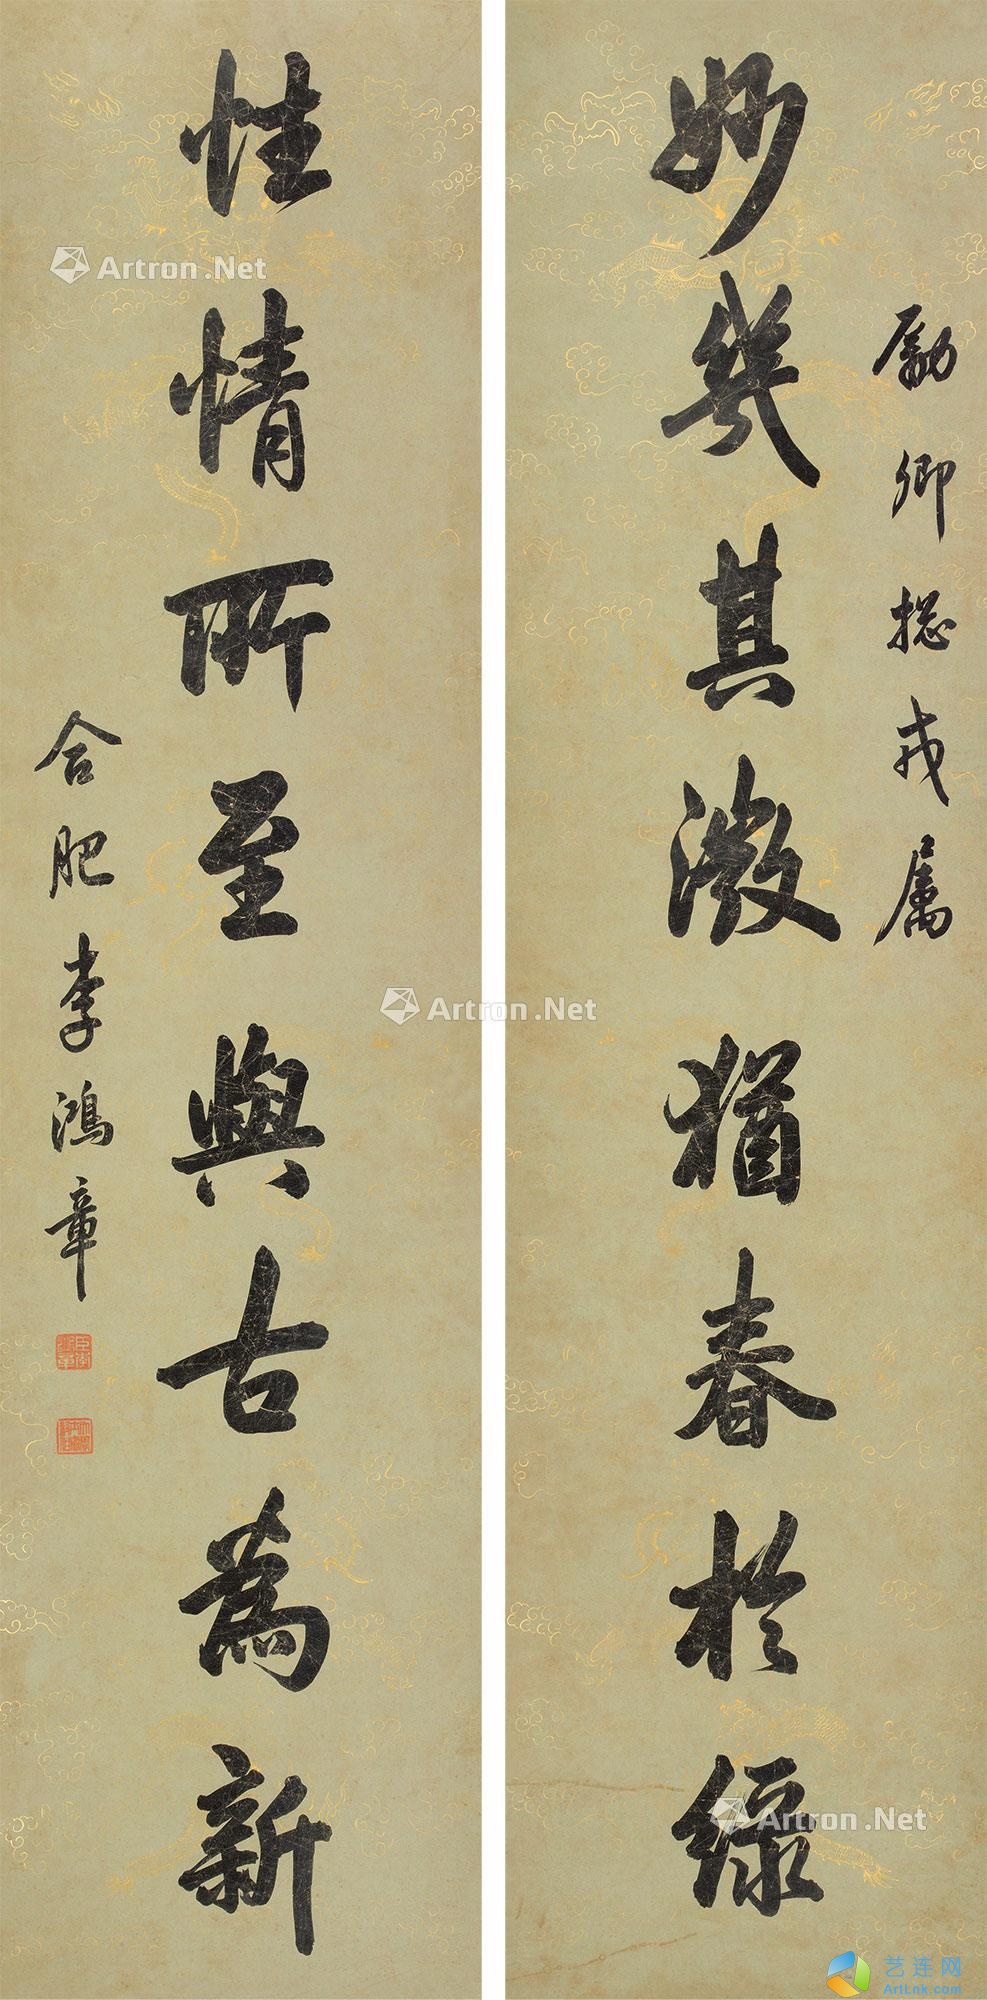 勛卿總戎屬
妙幾其微猶春於綠
性情所至與古為新
合肥李鴻章
Artron.Net
Artron.Net
Artron.Net
艺连网
ArtLnk.com